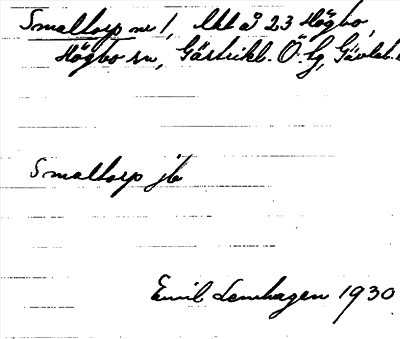 Smaltorp nr 1, lht å 23 Högbo,
Högbo sn, Gästrikl. Ö. tg, Gävleb.
Smaltorp jb
Emil Lenhagen 1930